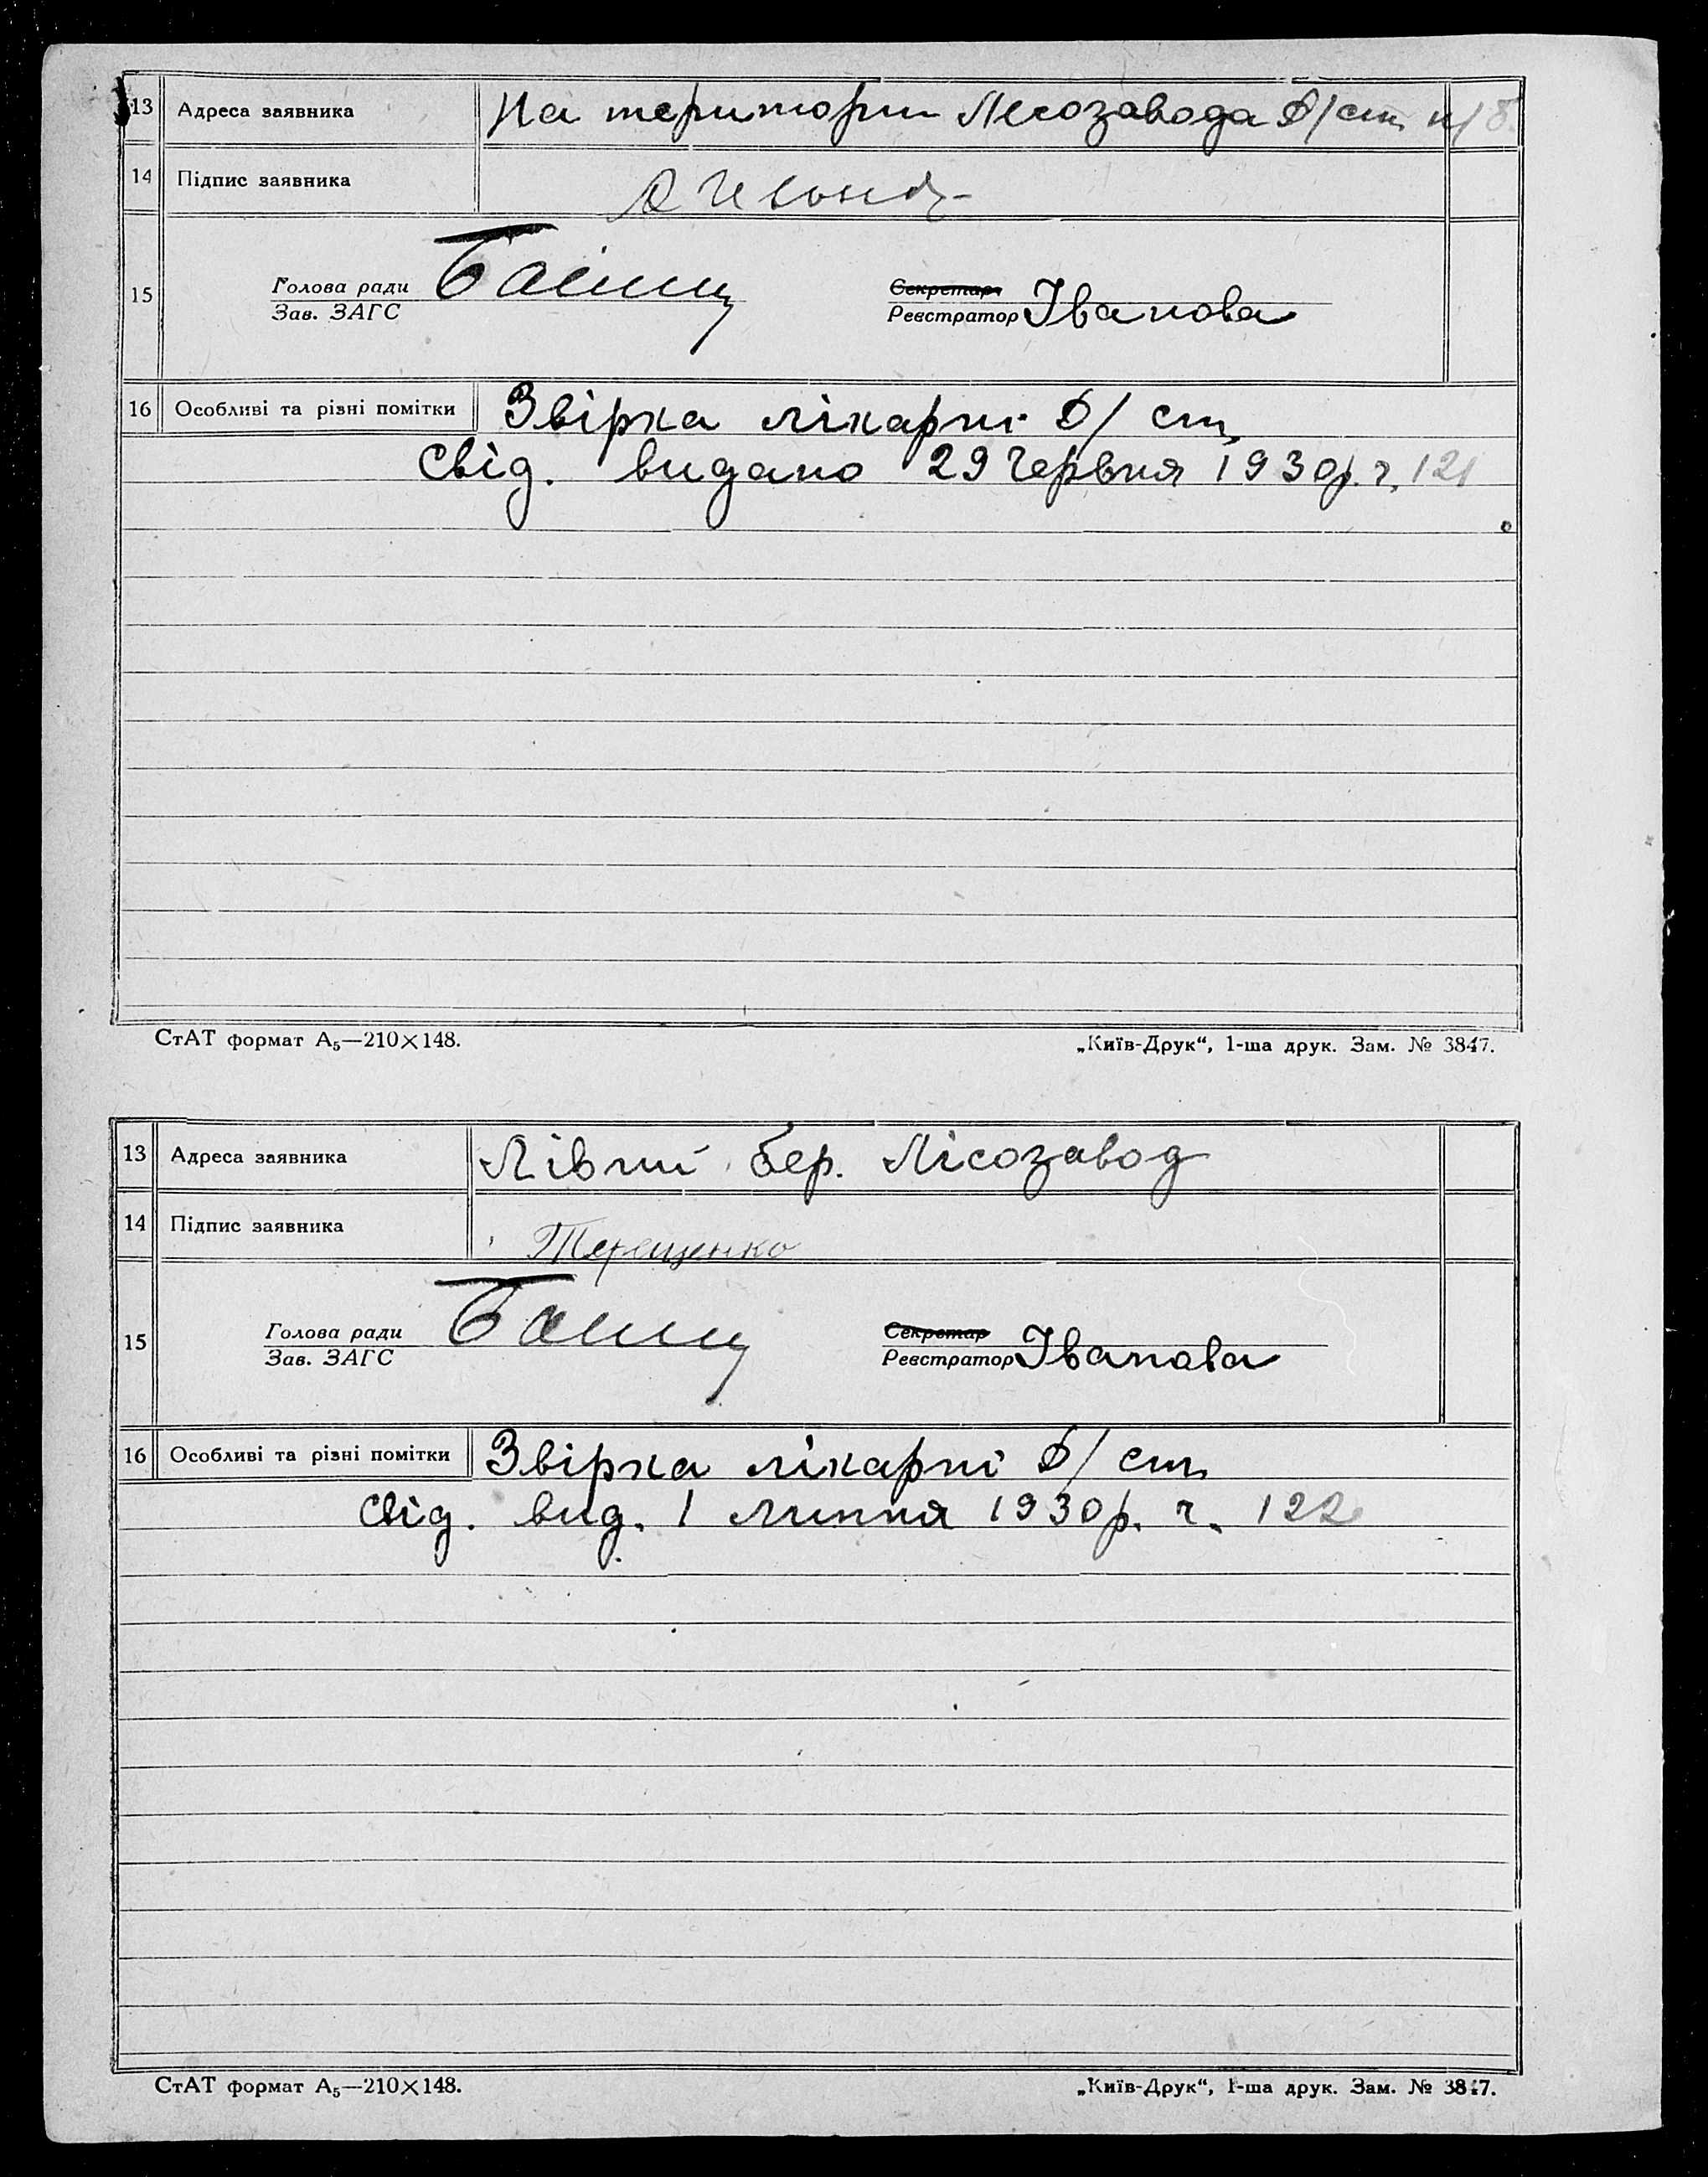 13 Адреса заявника На територии Лесозавода Д/ст.
14 Підпис заявника
15 Голова ради Секретар
Зав. ЗАГС Реєстратор Іванова
16 Особливі та різні помітки Звірка лікарні Д/ст.
Свід. видано 29 червня 1930р. ч. 121
СтАТ формат А₅—210×148. „Київ-Друк“, 1-ша друк. Зам. № 3847.
13 Адреса заявника Лівий бер. Лісозавод
14 Підпис заявника Терещенко
15 Голова ради Секретар
Зав. ЗАГС Реєстратор Іванова
16 Особливі та різні помітки Звірка лікарні Д/ст.
Свід. вид. 1 липня 1930р. ч. 122
СтАТ формат А₅—210×148. „Київ-Друк“, 1-ша друк. Зам. № 3847.